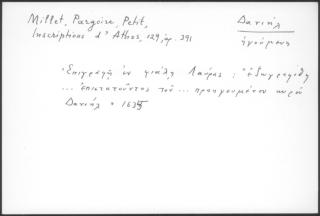 Millet, Pargoire, Petit,
Inscriptions d'Athos, 129, ἀρ. 391
Δανιήλ
ἡγούμενος
Ἐπιγραφὴ ἐν φιάλῃ Λαύρας: "ἐζωγραφήθη
... ἐπιστατοῦντος τοῦ ... προηγουμένου κυροῦ
Δανιήλ + 1635